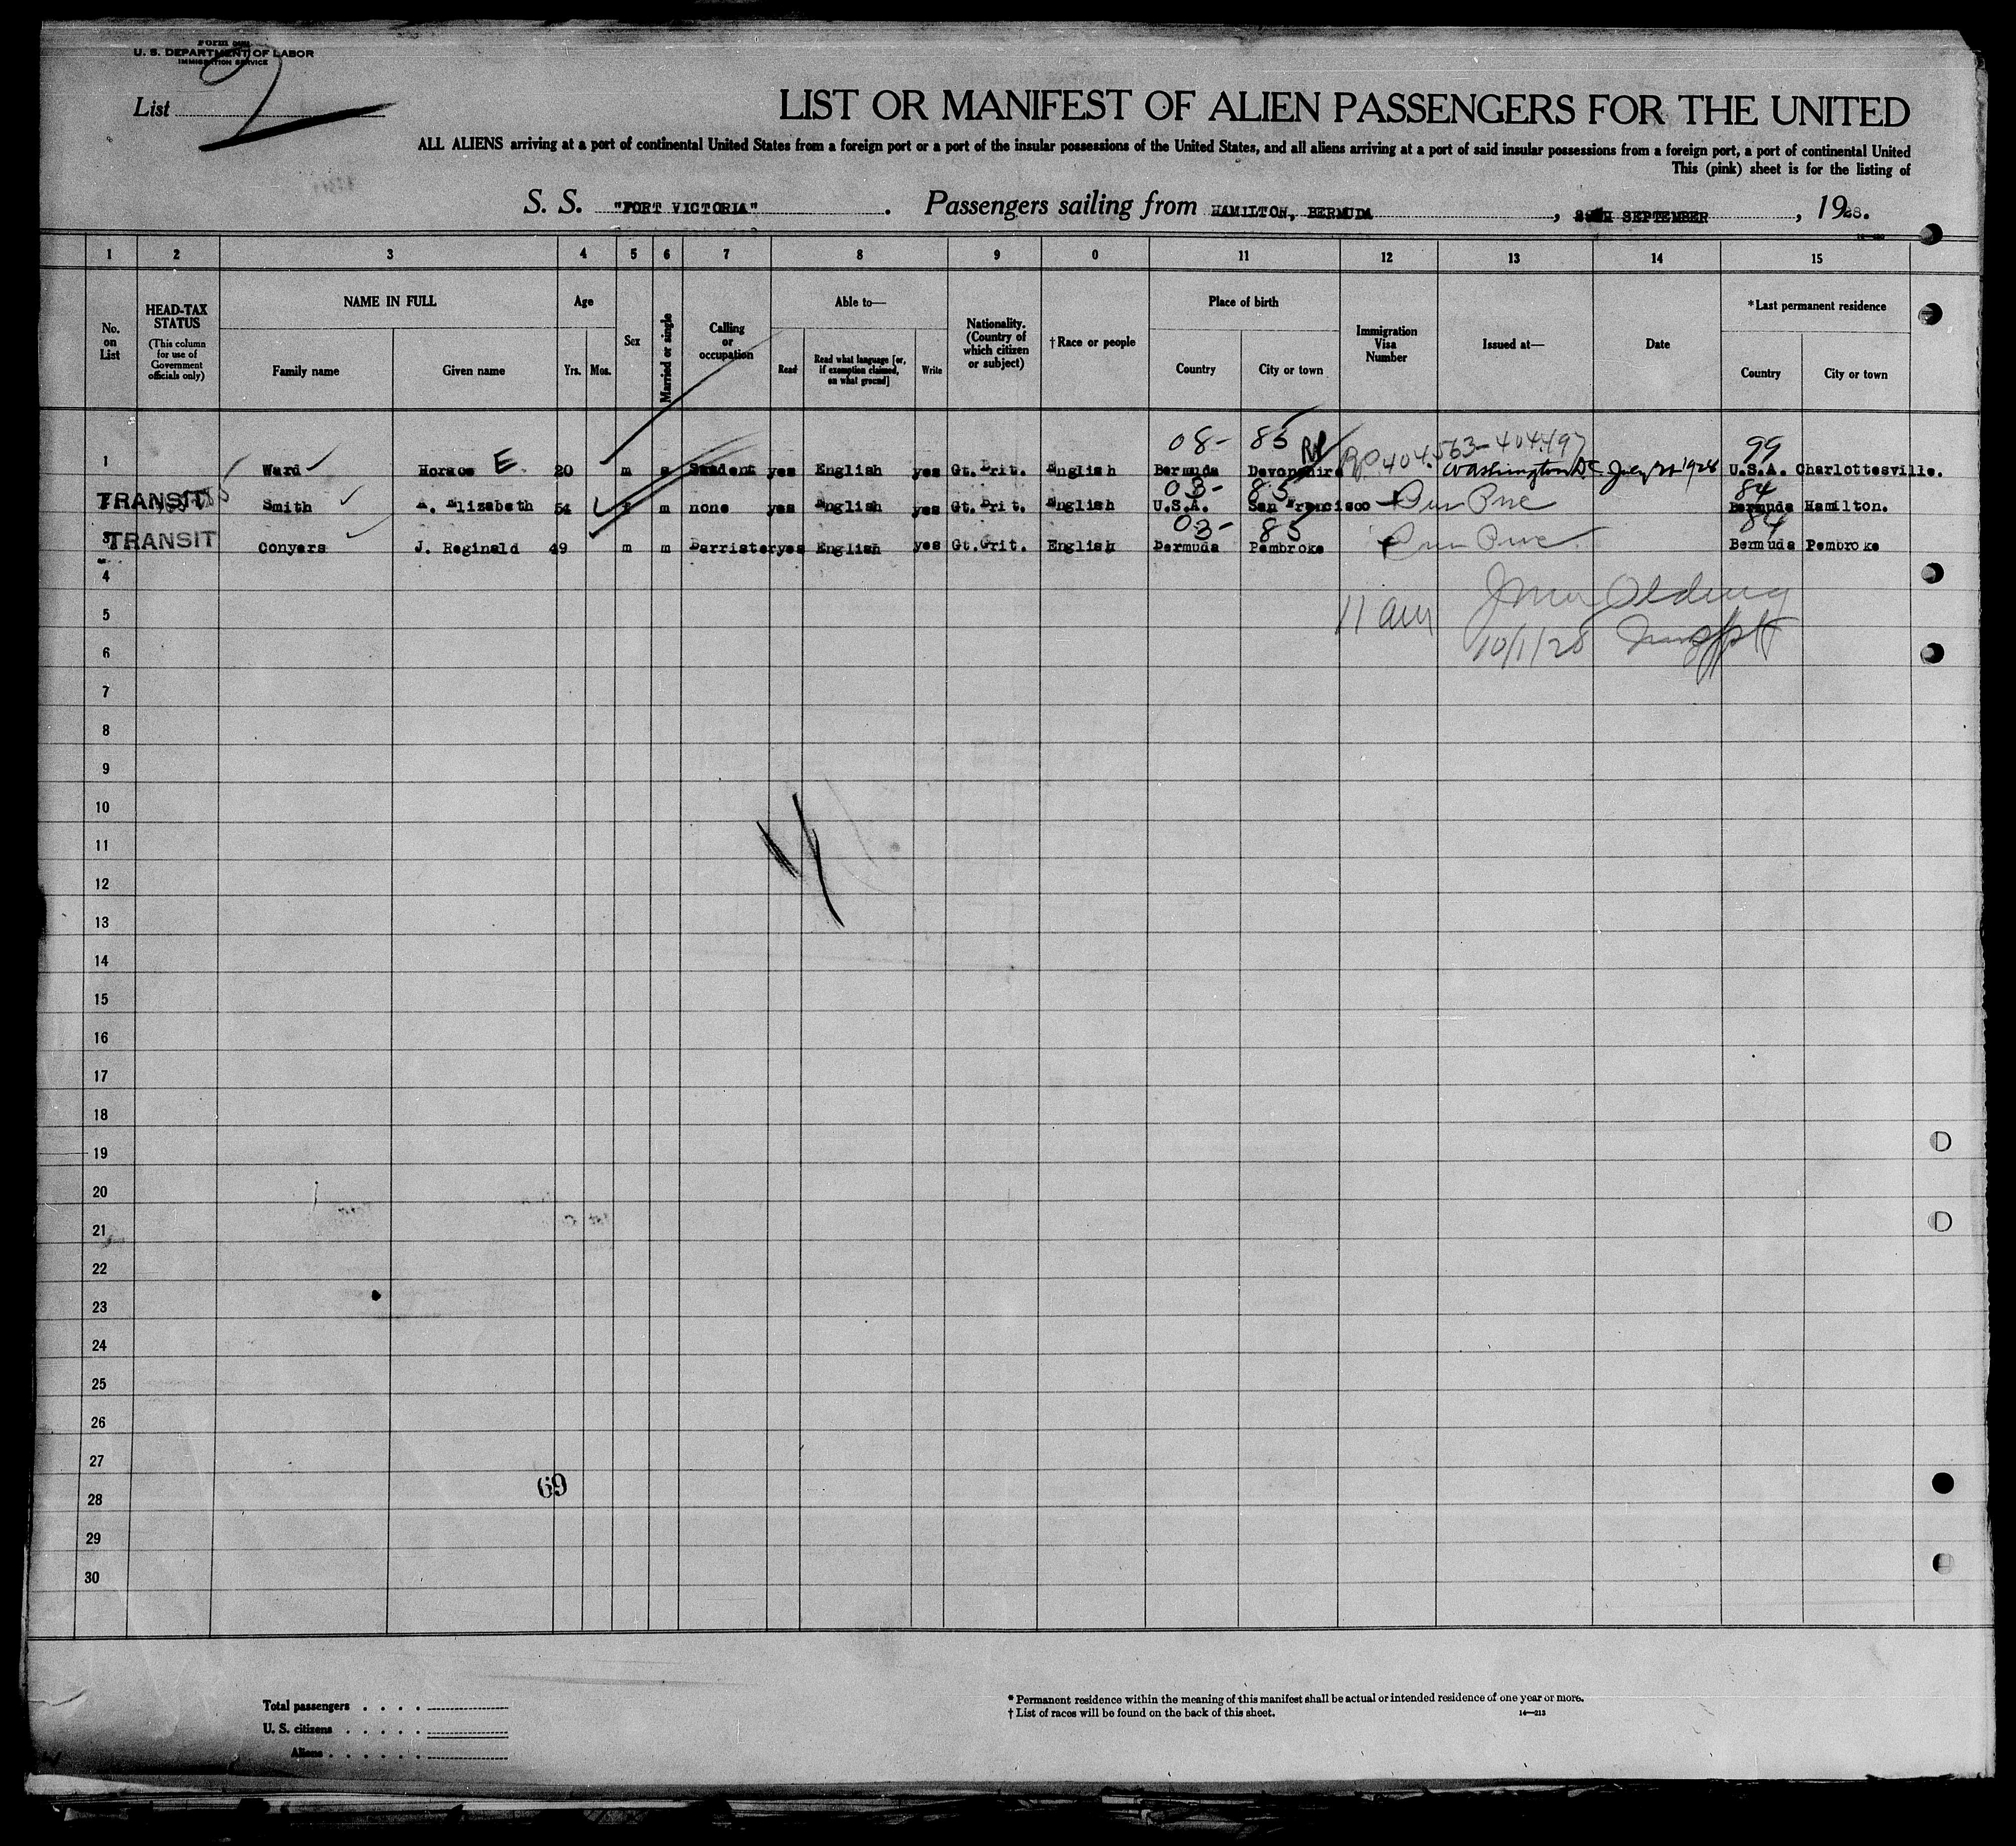 Form
U. S. DEPARTMENT OF LABOR
IMMIGRATION SERVICE
List 2
LIST OR MANIFEST OF ALIEN PASSENGERS FOR THE UNITED
ALL ALIENS arriving at a port of continental United States from a foreign port or a port of the insular possessions of the United States, and all aliens arriving at a port of said insular possessions from a foreign port, a port of continental United
This (pink) sheet is for the listing of
S. S. "FORT VICTORIA". Passengers sailing from HAMILTON, BERMUDA, SEPTEMBER, 1928.
1 2 3 4 5 6 7 8 9 0 11 12 13 14 15
No. on List
HEAD-TAX STATUS (This column for use of Government officials only)
NAME IN FULL Family name Given name
Age Yrs. Mos.
Sex
Married or single
Calling or occupation
Able to— Read Read what language [or, if exemption claimed, on what ground] Write
Nationality. (Country of which citizen or subject)
†Race or people
Place of birth Country City or town
Immigration Visa Number
Issued at—
Date
*Last permanent residence Country City or town
08- 85 99
1 Ward Horace E 20 m s Student yes English yes Gt. Brit. English Bermuda Devonshire RP 404.563-404497 Washington DC July 1928 U.S.A. Charlottesville.
03- 85 84
TRANSIT Smith A. Elizabeth 54 f m none yes English yes Gt. Brit. English U.S.A. San Francisco Bermuda Hamilton.
03- 85 84
3 TRANSIT Conyers J. Reginald 49 m m Barrister yes English yes Gt. Brit. English Bermuda Pembroke Bermuda Pembroke
4
5 11 am
6 10/1/28
7
8
9
10
11
12
13
14
15
16
17
18
19
20
21
22
23
24
25
26
27
69
28
29
30
Total passengers . . . .
U. S. citizens . . . . .
Aliens . . . . . .
* Permanent residence within the meaning of this manifest shall be actual or intended residence of one year or more.
† List of races will be found on the back of this sheet.
14—213